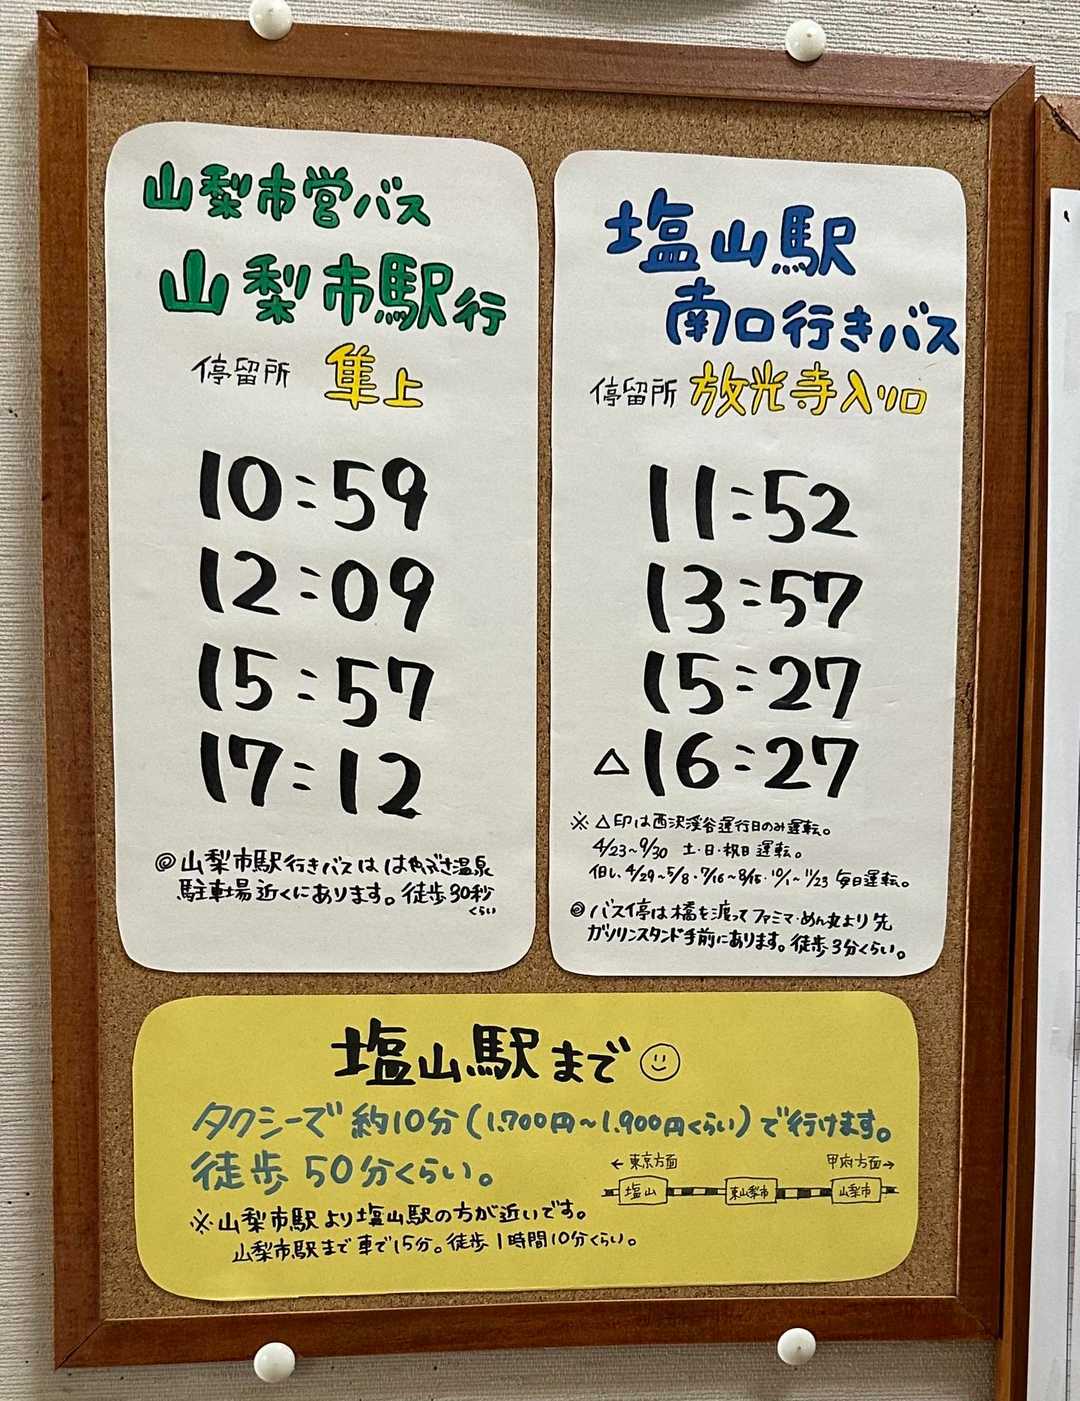 山梨市営バス
山梨市駅行
停留所 隼上
10:59
12:09
15:57
17:12
◎山梨市駅行きバスは はやぶさ温泉
駐車場近くにあります。徒歩30秒
くらい
塩山駅
南口行きバス
停留所 放光寺入り口
11:52
13:57
15:27
△16:27
※ △印は西沢渓谷運行日のみ運転。
4/23~9/30 土・日・祝日運転。
但し、4/29~5/8・7/16~8/15・10/1~11/23 毎日運転。
◎バス停は橋を渡ってファミマ・めん丸より先
ガソリンスタンド手前にあります。徒歩3分くらい。
塩山駅まで
タクシーで約10分(1.700円~1.900円くらい)で行けます。
徒歩50分くらい。
←東京方面 甲府方面→
塩山 東山梨市 山梨市
※山梨市駅より塩山駅の方が近いです。
山梨市駅まで車で15分。徒歩1時間10分くらい。